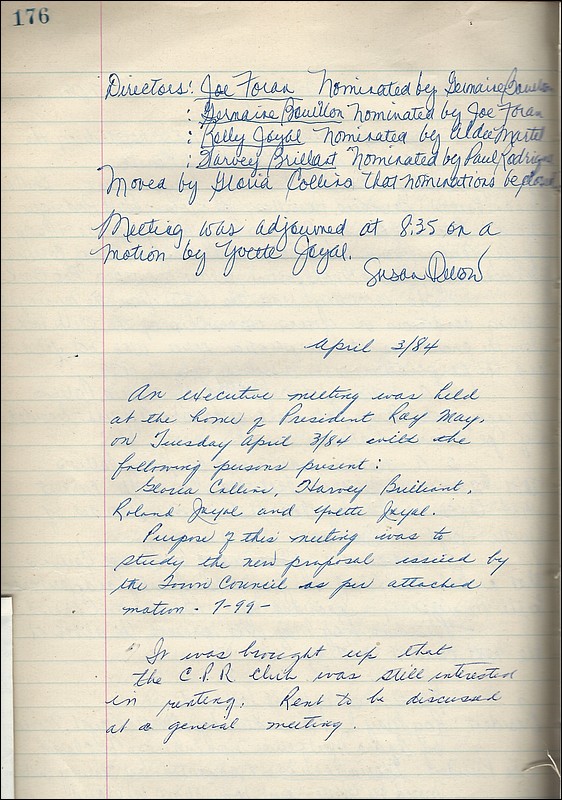 176
Directors: Joe Foran Nominated by Germaine Bouillon
: Germaine Bouillon Nominated by Joe Foran
: Kelly Joyal Nominated by Aldie Martel
: Harvey Brillant Nominated by Paul Rodrigue
Moved by Gloria Collins that nominations be closed
Meeting was adjourned at 8:35 on a
motion by Yvette Joyal.
Susan
April 3/84
An executive meeting was held
at the home of President Ray May,
on Tuesday April 3/84 with the
following persons present:
Gloria Collins, Harvey Brilliant,
Roland Joyal and Yvette Joyal.
Purpose of this meeting was to
study the new proposal issued by
the Town Council as per attached
motion. 7-99-
It was brought up that
the C.P.R Club was still interested
in renting. Rent to be discussed
at a general meeting.